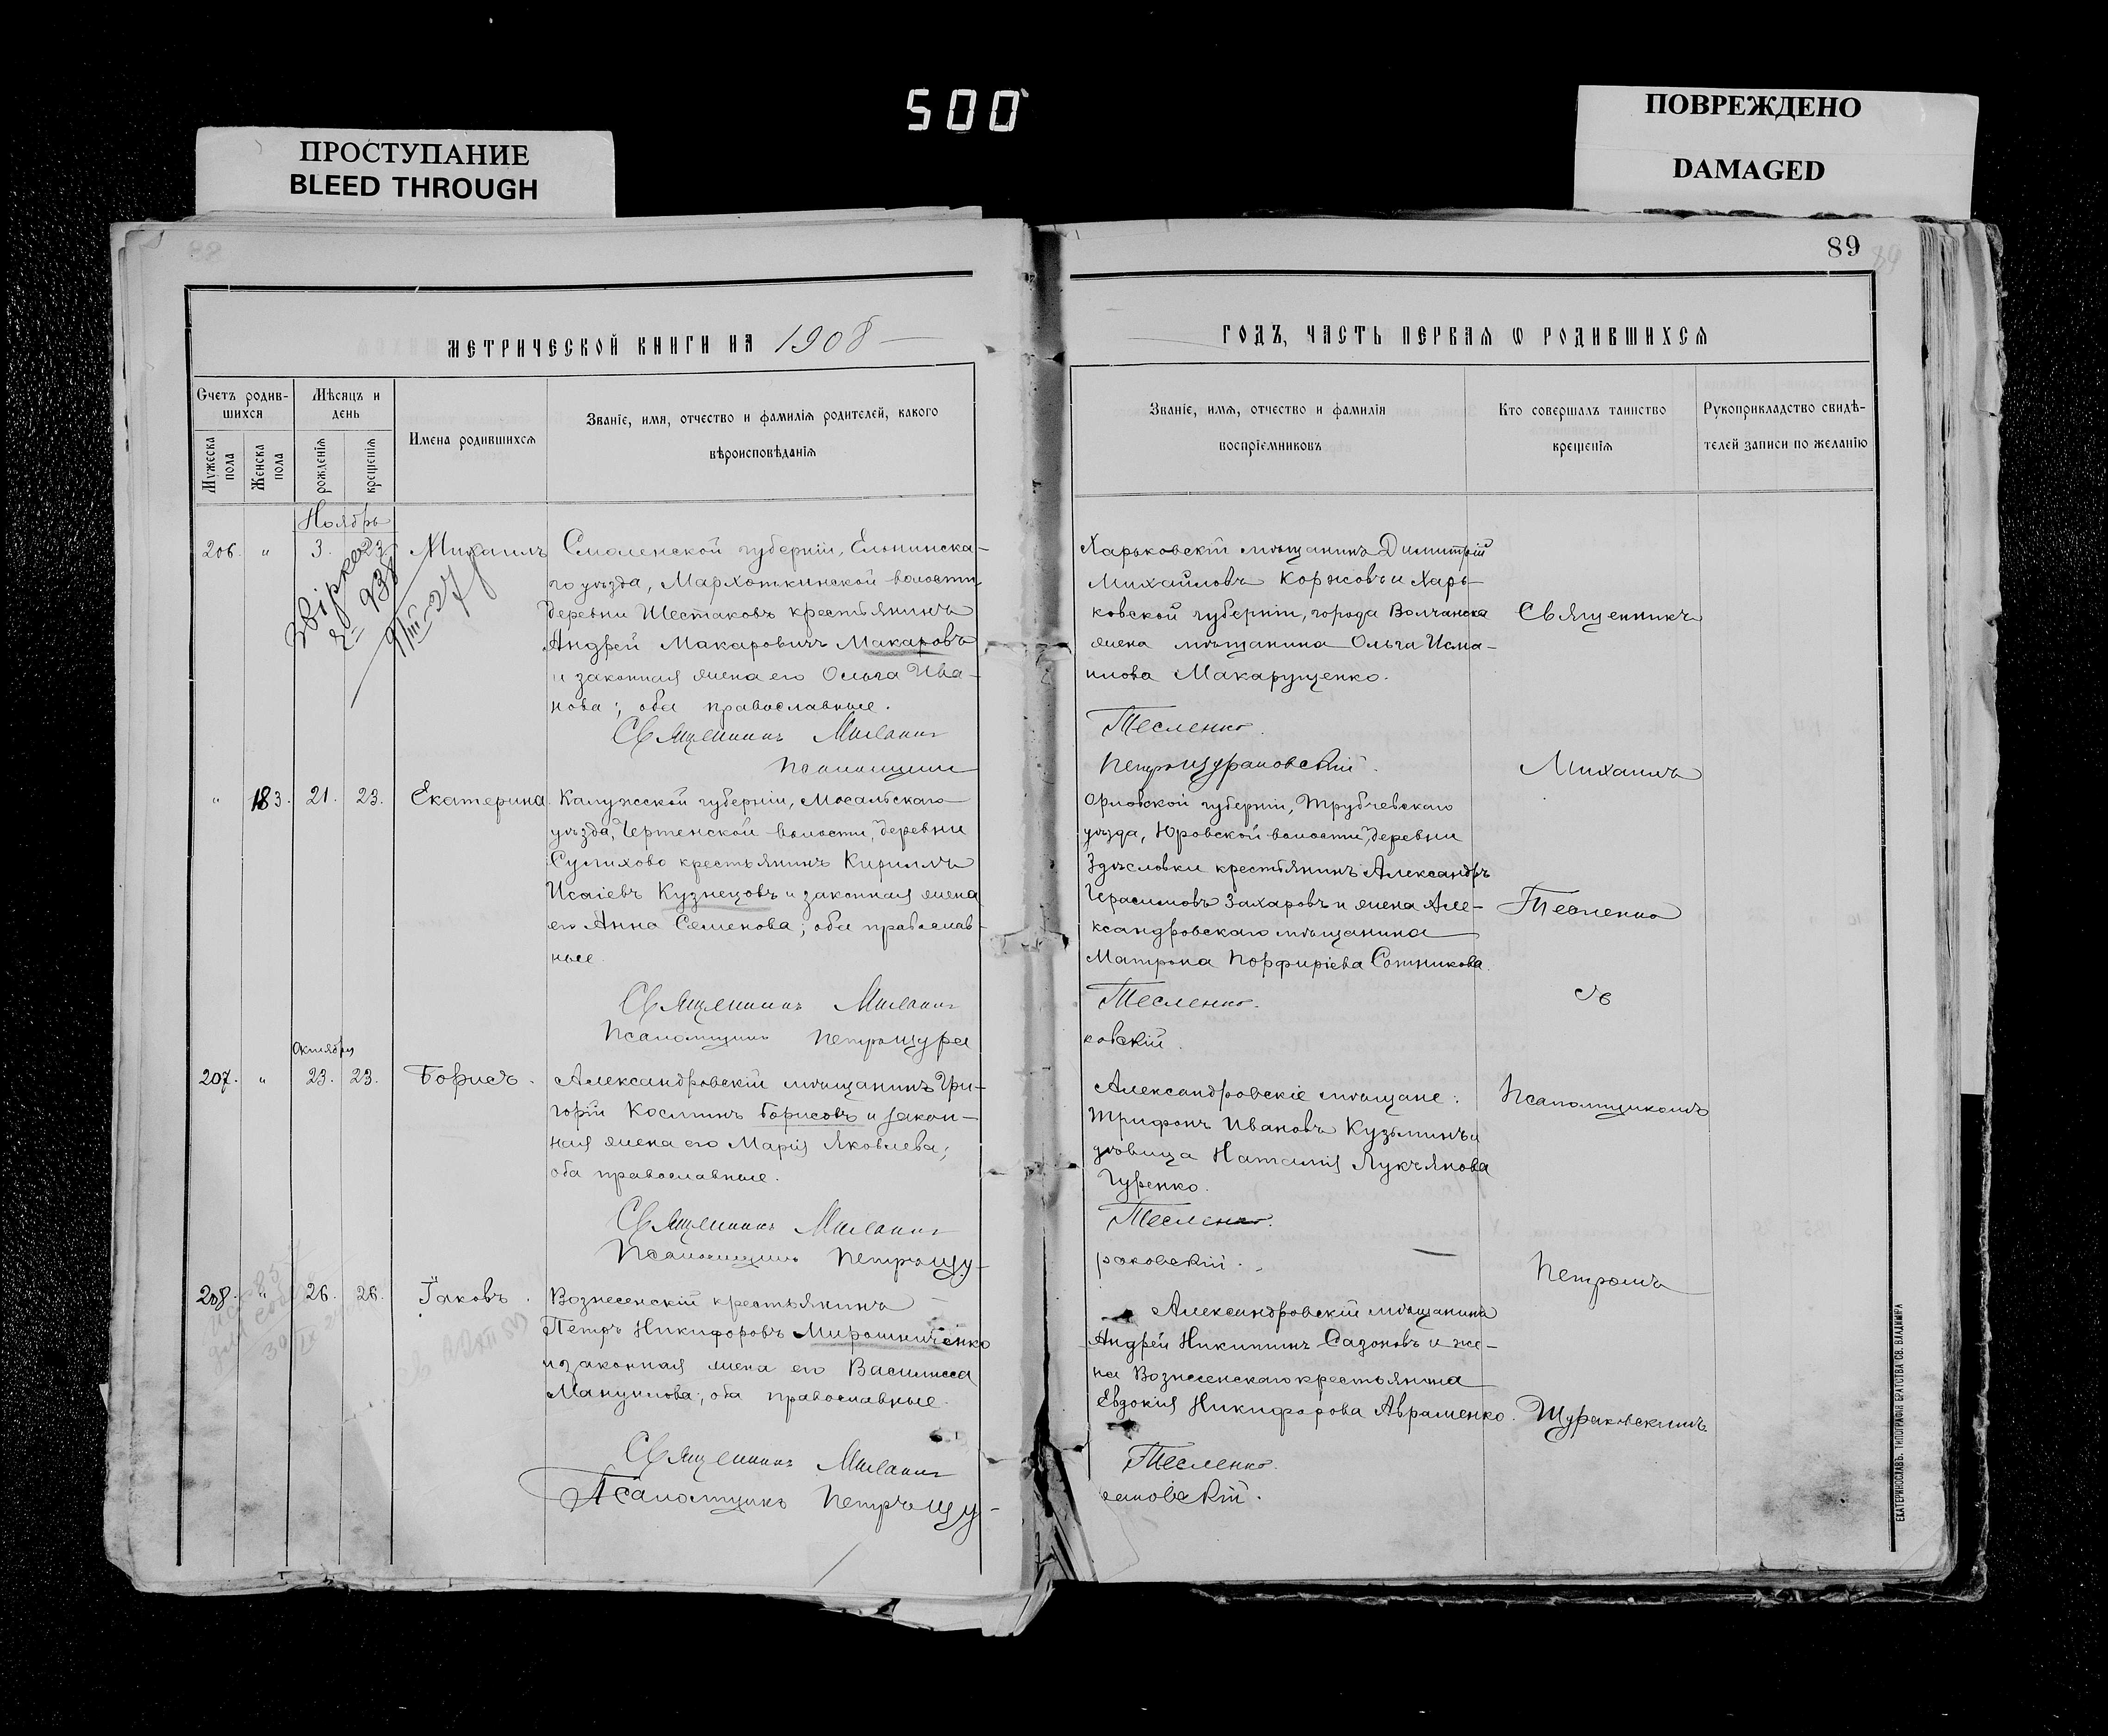 500
ПРОСТУПАНИЕ
BLEED THROUGH
ПОВРЕЖДЕНО
DAMAGED
88
89
МЕТРИЧЕСКОЙ КНИГИ НА 1908
Счетъ родив-
шихся
Мѣсяцъ и
день
Мужеска
пола
Женска
пола
рожденія
крещенія
Имена родившихся
Званіе, имя, отчество и фамилія родителей, какого
вѣроисповѣданія
Ноябрь
206. " 3. 23. Михаилъ
Смоленской губерніи, Ельнинска-
го уѣзда, Мархоткинской волости,
деревни Шестаковъ крестьянинъ
Андрей Макаровичъ Макаровъ
и законная жена его Ольга Ива-
нова; оба православные.
Священникъ Михаилъ
Псаломщикъ
" 183. 21. 23. Екатерина.
Калужской губерніи, Мосальскаго
уѣзда, Чертенской волости, деревни
Сулихово крестьянинъ Кириллъ
Исаіевъ Кузнецовъ и законная жена
его Анна Семенова; оба православ-
ные.
Священникъ Михаилъ
Псаломщикъ Петръ Щура
Октября
207. " 23. 23. Борисъ.
Александровскій мѣщанинъ Гри-
горій Косминъ Борисовъ и закон-
ная жена его Марія Яковлева;
оба православные.
Священникъ Михаилъ
Псаломщикъ Петръ Щу-
208. " 26. 26. Іаковъ.
Вознесенскій крестьянинъ
Петръ Никифоровъ Мирошниченко
и законная жена его Василисса
Мануилова; оба православные.
Священникъ Михаилъ
Псаломщикъ Петръ Щу-
ГОДЪ, ЧАСТЬ ПЕРВАЯ Ѡ РОДИВШИХСЯ
Званіе, имя, отчество и фамилія
воспріемниковъ
Кто совершалъ таинство
крещенія
Рукоприкладство свидѣ-
телей записи по желанію
Харьковскій мѣщанинъ Димитрій
Михайловъ Коржовъ и Харь-
ковской губерніи, города Волчанска
жена мѣщанина Ольга Исма-
илова Макарущенко.
Тесленко.
Петръ Щураковскій.
Орловской губерніи, Трубчевскаго
уѣзда, Юровской волости, деревни
Здѣсловки крестьянинъ Александръ
Герасимовъ Захаровъ и жена Але-
ксандровскаго мѣщанина
Матрона Порфиріева Сотникова.
Тесленко.
ковскій.
Александровскіе мѣщане:
Трифонъ Ивановъ Кузьминъ и
удовица Наталія Лукъянова
Гуренко.
Тесленко.
раковскій.
Александровскій мѣщанинъ
Андрей Никитинъ Сазоновъ и же-
на Вознесенскаго крестьянина
Евдокія Никифорова Авраменко.
Тесленко.
раковскій.
Священникъ
Михаилъ
Тесленко
съ
Псаломщикомъ
Петромъ
Щураковскимъ
ЕКАТЕРИНОСЛАВЪ. ТИПОГРАФІЯ БРАТСТВА СВ. ВЛАДИМІРА